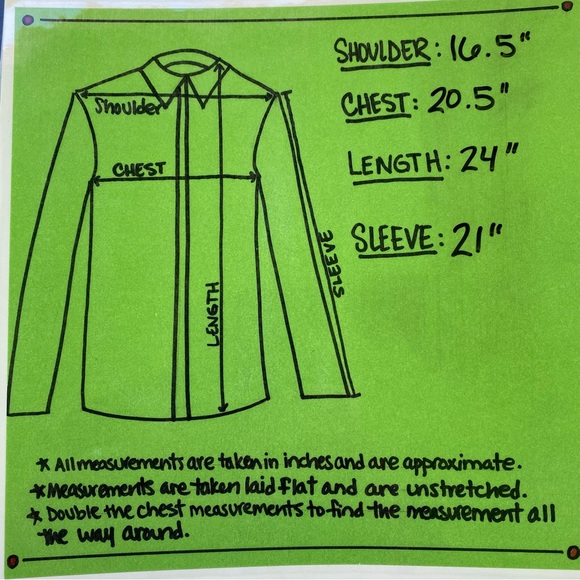 SHOULDER: 16.5"
CHEST: 20.5"
LENGTH: 24"
SLEEVE: 21"
Shoulder
CHEST
LENGTH
SLEEVE
* All measurements are taken in inches and are approximate.
* Measurements are taken laid flat and are unstretched.
* Double the chest measurements to find the measurement all
the way around.